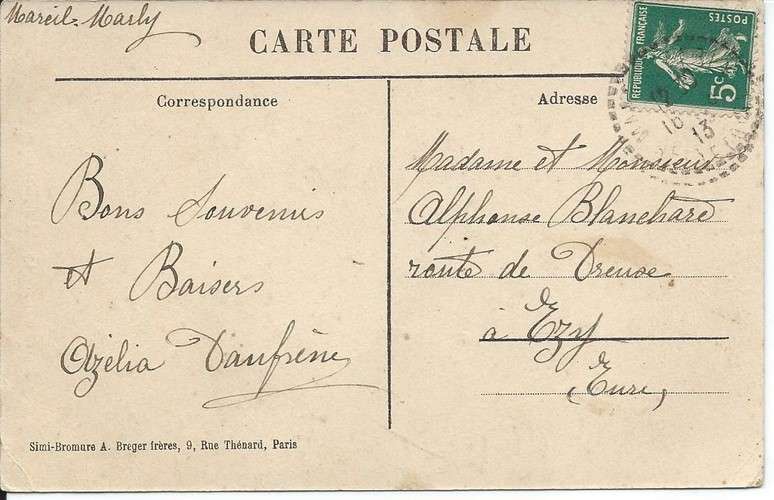 Mareil-Marly
CARTE POSTALE
RÉPUBLIQUE FRANÇAISE
POSTES
5c
Correspondance
Adresse
16
13
Bons Souvenirs
et Baisers
Azélia Daufrène
Madame et Monsieur
Alphonse Blanchard
route de Dreuse
à Ezy
(Eure)
Simi-Bromure A. Breger frères, 9, Rue Thénard, Paris